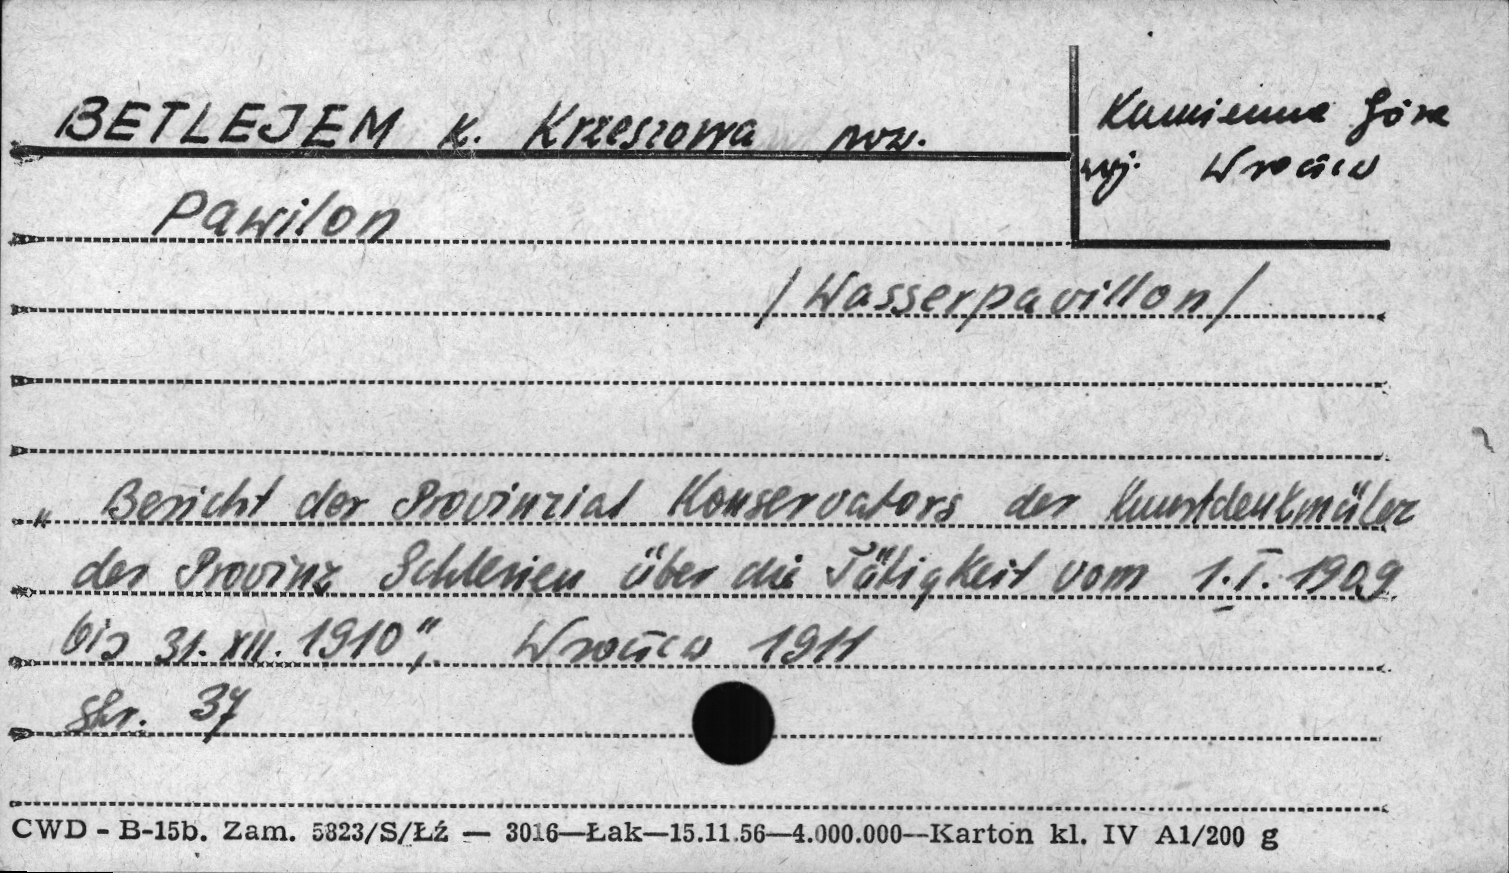 BETLEJEM k. Krzeszowa pow. Kamienna Góra
woj. Wrocław
Pawilon
/Wasserpavillon/
„ Bericht der Provinzial Konservators der Kunstdenkmäler
der Provinz Schlesien über die Tätigkeit vom 1.I.1909
bis 31.XII.1910", Wrocław 1911
str. 37
CWD - B-15b. Zam. 5823/S/Łź — 3016—Łak—15.11.56—4.000.000—Karton kl. IV A1/200 g